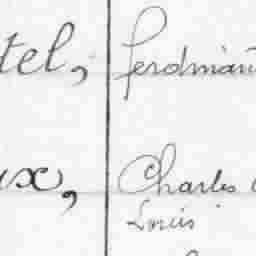 tel, Ferdinan
ux, Charles
Louis